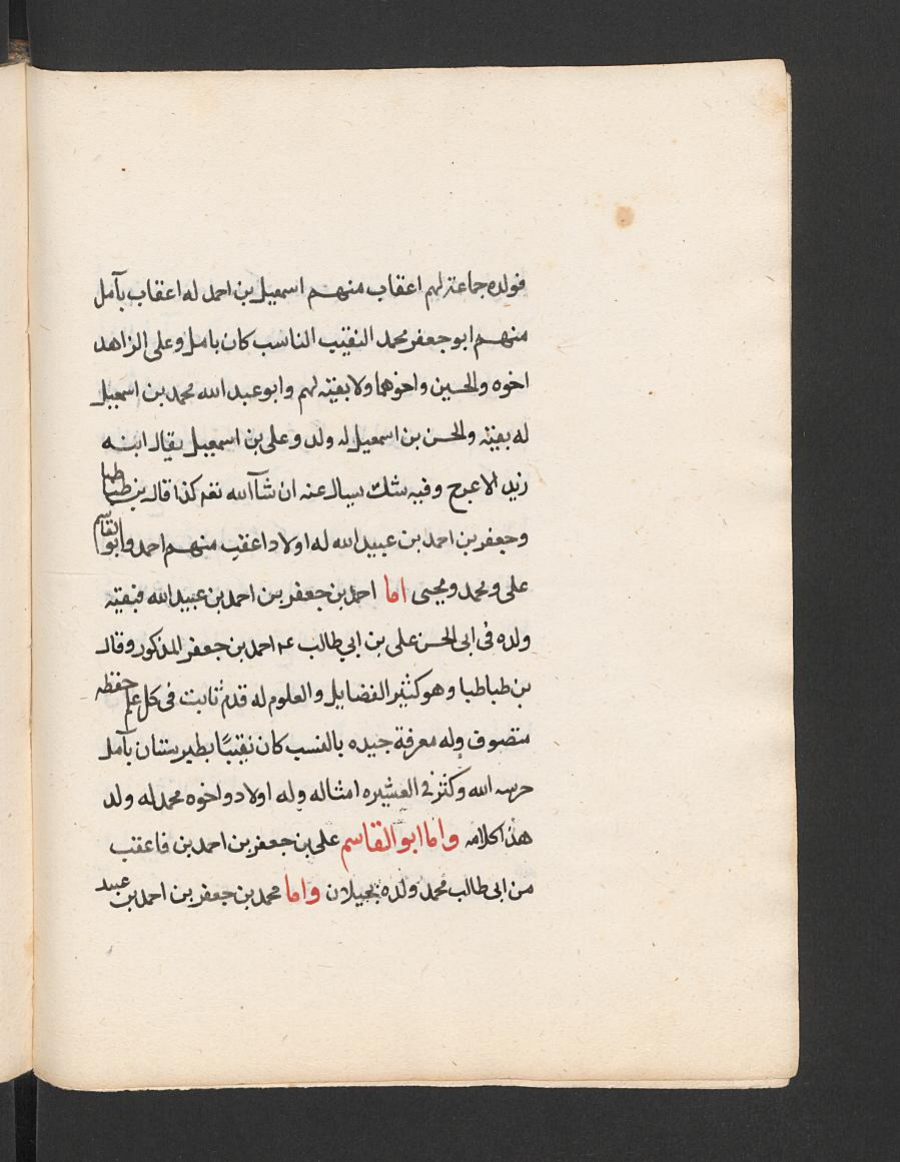 فولده جماعة لهم اعقاب منهم اسمعيل بن احمد له اعقاب بآمل
منهم ابو جعفر محمد النقيب الناسب كان بامل وعلى الزاهد
اخوه والحسين واخوهما ولا بقية لهم وابو عبد الله محمد بن اسمعيل
له بقية والحسن بن اسمعيل له ولد وعلى بن اسمعيل يقال ابنه
زيد الاعرج وفيه شك يسال عنه ان شآ الله تعم كذا قال بن طباطبا
وجعفر بن احمد بن عبيد الله له اولاد اعقب منهم احمد وابو القاسم
على ومحمد ويحيى اما احمد بن جعفر بن احمد بن عبيد الله فبقية
ولده فى ابى الحسن على بن ابي طالب احمد بن جعفر المذكور وقال
بن طباطبا وهو كثير الفضايل والعلوم له قدم ثابت فى كل علم حفظه
متصوف وله معرفة جيده بالنسب كان نقيبًا بطبرستان بآمل
حرسه الله وكثر في العشيره امثاله وله اولاد واخوه محمد له ولد
هذا كلامه واما ابو القاسم على بن جعفر بن احمد بن فاعقب
من ابى طالب محمد ولده بجيلان واما محمد بن جعفر بن احمد بن عبيد